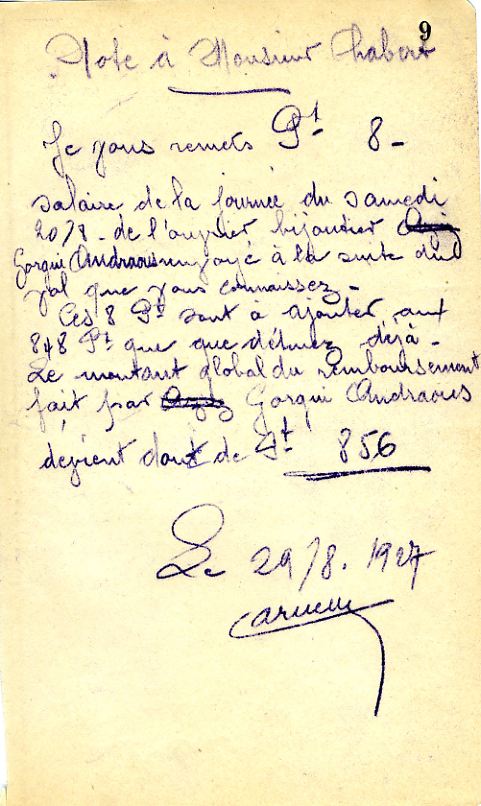 9
Note à Monsieur Chabert
Je vous remets Pt 8 -
salaire de la journée du samedi
20/8 - de l'ouvrier bijoutier
Gorgui Andraous renvoyé à la suite du
vol que vous connaissez -
Ces 8 Pt sont à ajouter aux
848 Pt que que détenez déjà -
Le montant global du remboursement
fait par Gorgui Andraous
devient dont de Pt 856
Le 29/8. 1927